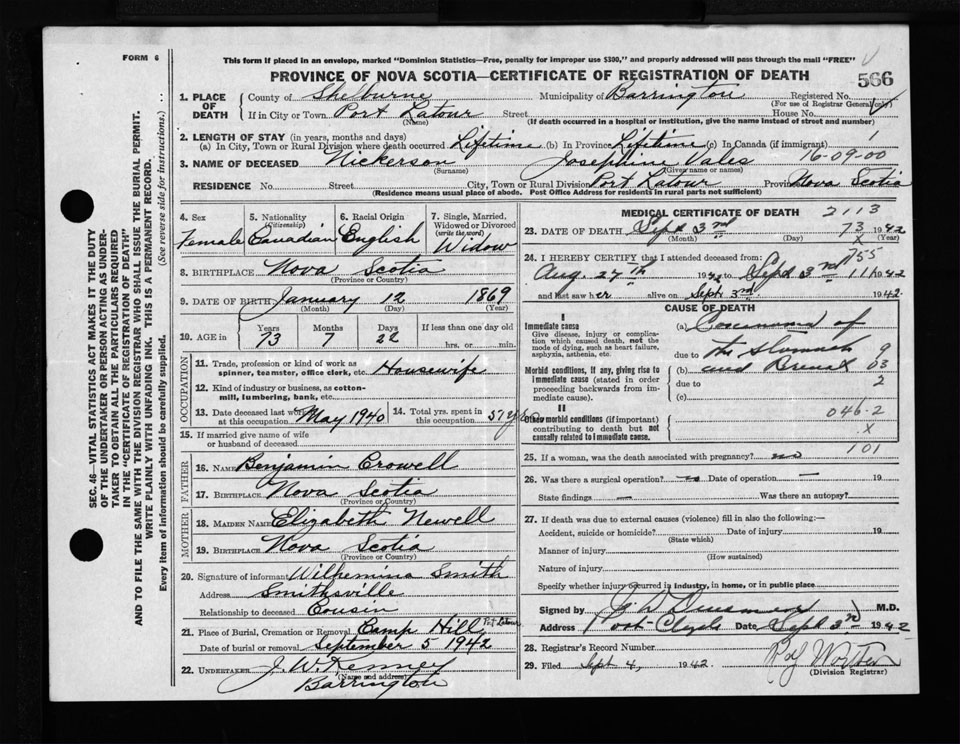 FORM 6
This form if placed in an envelope, marked "Dominion Statistics—Free, penalty for improper use $300," and properly addressed will pass through the mail "FREE"
PROVINCE OF NOVA SCOTIA—CERTIFICATE OF REGISTRATION OF DEATH
566
1. PLACE OF DEATH County of Shelburne Municipality of Barrington Registered No.
(For use of Registrar General only)
If in City or Town Port Latour Street House No.
(Name) (If death occurred in a hospital or institution, give the name instead of street and number)
2. LENGTH OF STAY (in years, months and days)
(a) In City, Town or Rural Division where death occurred Lifetime (b) In Province Lifetime (c) In Canada (if immigrant)
3. NAME OF DECEASED Nickerson Josephine Vales 16-09-00
(Surname) (Given name or names)
RESIDENCE No. Street City, Town or Rural Division Port Latour Province Nova Scotia
(Residence means usual place of abode. Post Office Address for residents in rural parts not sufficient)
4. Sex Female
5. Nationality (Citizenship) Canadian
6. Racial Origin English
7. Single, Married, Widowed or Divorced (write the word) Widow
8. BIRTHPLACE Nova Scotia
(Province or Country)
9. DATE OF BIRTH January 12 1869
(Month) (Day) (Year)
10. AGE in Years 73 Months 7 Days 22 If less than one day old
hrs. or min.
OCCUPATION
11. Trade, profession or kind of work as spinner, teamster, office clerk, etc. Housewife
12. Kind of industry or business, as cotton-mill, lumbering, bank, etc.
13. Date deceased last worked at this occupation May 1940 14. Total yrs. spent in this occupation 57 yrs
15. If married give name of wife or husband of deceased
FATHER
16. NAME Benjamin Crowell
17. BIRTHPLACE Nova Scotia
(Province or Country)
MOTHER
18. MAIDEN NAME Elizabeth Newell
19. BIRTHPLACE Nova Scotia
(Province or Country)
20. Signature of informant Wilhemina Smith
Address Smithsville
Relationship to deceased Cousin
21. Place of Burial, Cremation or Removal Camp Hill Port Latour
Date of burial or removal September 5 1942
22. UNDERTAKER J. W. Kenney
(Name and address)
Barrington
MEDICAL CERTIFICATE OF DEATH 2113
23. DATE OF DEATH Sept 3rd 73 1942
(Month) (Day) X (Year)
24. I HEREBY CERTIFY that I attended deceased from: 755
Aug. 27th 1942 to Sept 3rd 11 1942
and last saw her alive on Sept 3rd. 1942.
CAUSE OF DEATH
I
Immediate cause
Give disease, injury or complication which caused death, not the mode of dying, such as heart failure, asphyxia, asthenia, etc.
(a) of
due to the stomach 9
Morbid conditions, if any, giving rise to immediate cause (stated in order proceeding backwards from immediate cause).
(b) and 03
due to 2
(c)
II
Other morbid conditions (if important) contributing to death but not causally related to immediate cause.
046.2
X
25. If a woman, was the death associated with pregnancy? no 101
26. Was there a surgical operation? no Date of operation —
State findings — Was there an autopsy?
27. If death was due to external causes (violence) fill in also the following:—
Accident, suicide or homicide? Date of injury 19
(State which)
Manner of injury
(How sustained)
Nature of injury
Specify whether injury occurred in industry, in home, or in public place
Signed by M.D.
Address Port Clyde Date Sept 3rd 1942
28. Registrar's Record Number
29. Filed Sept 4, 1942
(Division Registrar)
SEC. 46—VITAL STATISTICS ACT MAKES IT THE DUTY
OF THE UNDERTAKER OR PERSON ACTING AS UNDER-
TAKER TO OBTAIN ALL THE PARTICULARS REQUIRED
IN THE "CERTIFICATE OF REGISTRATION OF DEATH"
AND TO FILE THE SAME WITH THE DIVISION REGISTRAR WHO SHALL ISSUE THE BURIAL PERMIT.
WRITE PLAINLY WITH UNFADING INK. THIS IS A PERMANENT RECORD.
Every item of information should be carefully supplied. (See reverse side for instructions.)